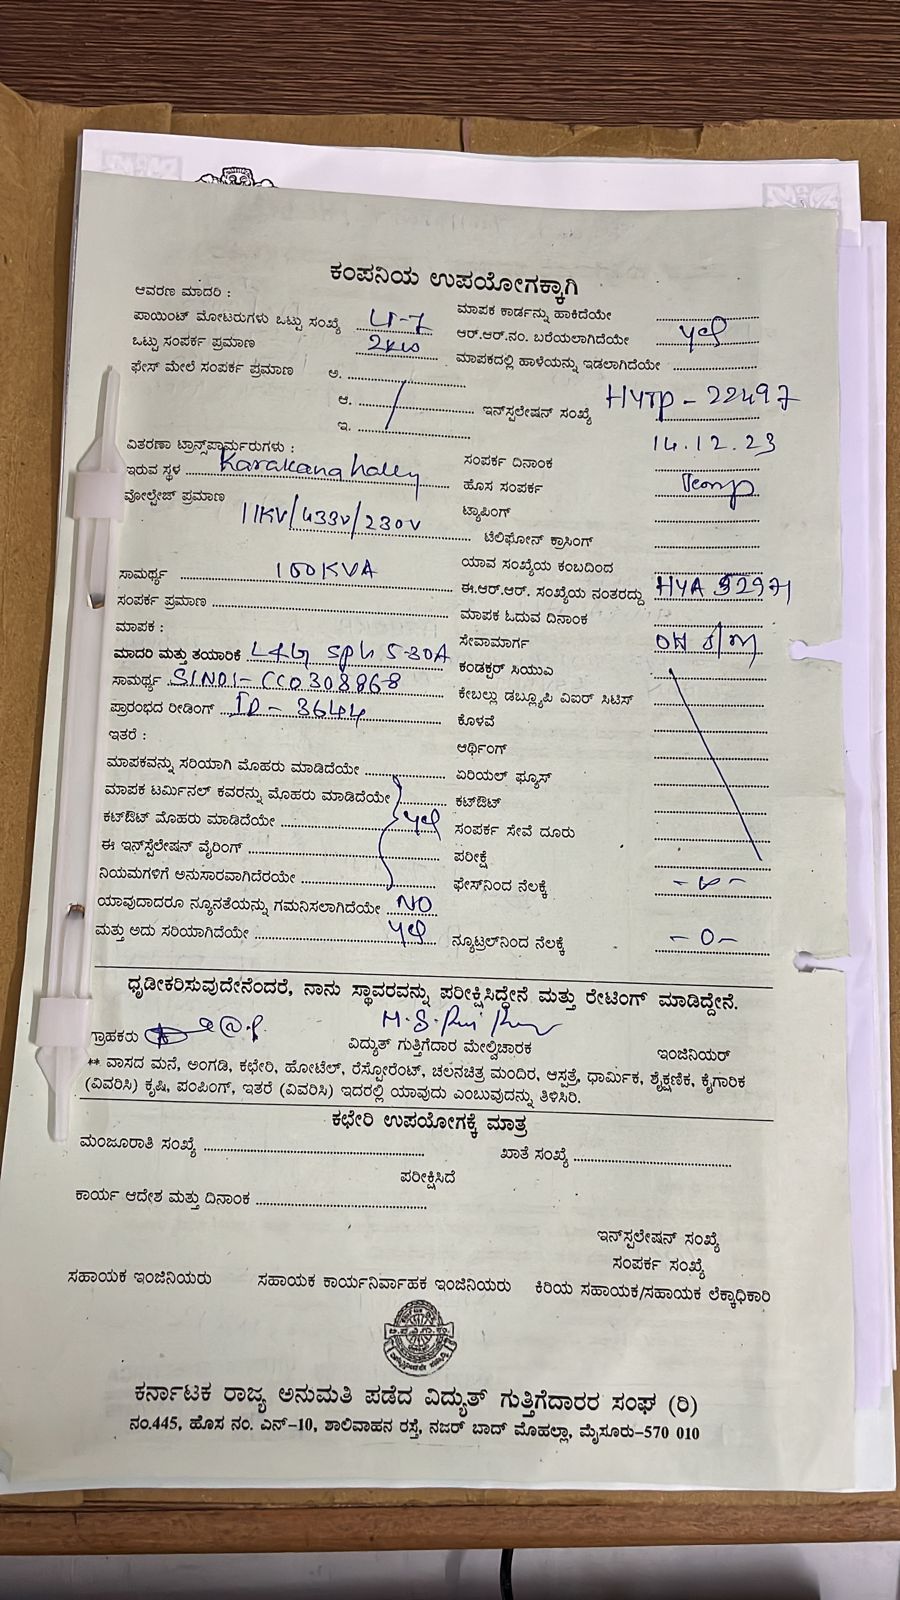 ಕಂಪನಿಯ ಉಪಯೋಗಕ್ಕಾಗಿ
ಆವರಣ ಮಾದರಿ :
ಮಾಪಕ ಕಾರ್ಡನ್ನು ಹಾಕಿದೆಯೇ
ಪಾಯಿಂಟ್ ಮೋಟರುಗಳು ಒಟ್ಟು ಸಂಖ್ಯೆ LT-7
ಆರ್.ಆರ್.ನಂ. ಬರೆಯಲಾಗಿದೆಯೇ yes
ಒಟ್ಟು ಸಂಪರ್ಕ ಪ್ರಮಾಣ 2KW
ಮಾಪಕದಲ್ಲಿ ಹಾಳೆಯನ್ನು ಇಡಲಾಗಿದೆಯೇ
ಫೇಸ್ ಮೇಲೆ ಸಂಪರ್ಕ ಪ್ರಮಾಣ ಅ.
ಆ.
ಇನ್‌ಸ್ಪಲೇಷನ್ ಸಂಖ್ಯೆ HYTP - 22497
ಇ.
ವಿತರಣಾ ಟ್ರಾನ್ಸ್‌ಫಾರ್ಮರುಗಳು :
ಸಂಪರ್ಕ ದಿನಾಂಕ 14.12.23
ಇರುವ ಸ್ಥಳ Karakanahally
ಹೊಸ ಸಂಪರ್ಕ Temp
ವೋಲ್ಟೇಜ್ ಪ್ರಮಾಣ 11KV/433V/230V
ಟ್ಯಾಪಿಂಗ್
ಟೆಲಿಫೋನ್ ಕ್ರಾಸಿಂಗ್
ಯಾವ ಸಂಖ್ಯೆಯ ಕಂಬದಿಂದ
ಸಾಮರ್ಥ್ಯ 100KVA
ಈ.ಆರ್.ಆರ್. ಸಂಖ್ಯೆಯ ನಂತರದ್ದು HYA
ಸಂಪರ್ಕ ಪ್ರಮಾಣ
ಮಾಪಕ ಓದುವ ದಿನಾಂಕ
ಮಾಪಕ :
ಸೇವಾಮಾರ್ಗ OH S/M
ಮಾದರಿ ಮತ್ತು ತಯಾರಿಕೆ L&G Sph 5-30A
ಕಂಡಕ್ಟರ್ ಸಿಯುಎ
ಸಾಮರ್ಥ್ಯ SLNO1-CC0308868
ಕೇಬಲ್ಲು ಡಬ್ಲ್ಯೂಪಿ ವಿಐರ್ ಸಿಟಿಸ್
ಪ್ರಾರಂಭದ ರೀಡಿಂಗ್ IR - 3644
ಕೊಳವೆ
ಇತರೆ :
ಆರ್ಥಿಂಗ್
ಮಾಪಕವನ್ನು ಸರಿಯಾಗಿ ಮೊಹರು ಮಾಡಿದೆಯೇ
ಏರಿಯಲ್ ಫ್ಯೂಸ್
ಮಾಪಕ ಟರ್ಮಿನಲ್ ಕವರನ್ನು ಮೊಹರು ಮಾಡಿದೆಯೇ
ಕಟ್‌ಔಟ್
ಕಟ್‌ಔಟ್ ಮೊಹರು ಮಾಡಿದೆಯೇ yes
ಸಂಪರ್ಕ ಸೇವೆ ದೂರು
ಈ ಇನ್‌ಸ್ಪೆಲೇಷನ್ ವೈರಿಂಗ್
ಪರೀಕ್ಷೆ
ನಿಯಮಗಳಿಗೆ ಅನುಸಾರವಾಗಿದೆರಯೇ
ಫೇಸ್‌ನಿಂದ ನೆಲಕ್ಕೆ
ಯಾವುದಾದರೂ ನ್ಯೂನತೆಯನ್ನು ಗಮನಿಸಲಾಗಿದೆಯೇ NO
ಮತ್ತು ಅದು ಸರಿಯಾಗಿದೆಯೇ yes
ನ್ಯೂಟ್ರಲ್‌ನಿಂದ ನೆಲಕ್ಕೆ -0-
ಧೃಡೀಕರಿಸುವುದೇನೆಂದರೆ, ನಾನು ಸ್ಥಾವರವನ್ನು ಪರೀಕ್ಷಿಸಿದ್ದೇನೆ ಮತ್ತು ರೇಟಿಂಗ್ ಮಾಡಿದ್ದೇನೆ.
ಗ್ರಾಹಕರು
ವಿದ್ಯುತ್ ಗುತ್ತಿಗೆದಾರ ಮೇಲ್ವಿಚಾರಕ
ಇಂಜಿನಿಯರ್
** ವಾಸದ ಮನೆ, ಅಂಗಡಿ, ಕಛೇರಿ, ಹೋಟೆಲ್, ರೆಸ್ಟೋರೆಂಟ್, ಚಲನಚಿತ್ರ ಮಂದಿರ, ಆಸ್ಪತ್ರೆ, ಧಾರ್ಮಿಕ, ಶೈಕ್ಷಣಿಕ, ಕೈಗಾರಿಕ
(ವಿವರಿಸಿ) ಕೃಷಿ, ಪಂಪಿಂಗ್, ಇತರೆ (ವಿವರಿಸಿ) ಇದರಲ್ಲಿ ಯಾವುದು ಎಂಬುವುದನ್ನು ತಿಳಿಸಿರಿ.
ಕಛೇರಿ ಉಪಯೋಗಕ್ಕೆ ಮಾತ್ರ
ಮಂಜೂರಾತಿ ಸಂಖ್ಯೆ
ಖಾತೆ ಸಂಖ್ಯೆ
ಪರೀಕ್ಷಿಸಿದೆ
ಕಾರ್ಯ ಆದೇಶ ಮತ್ತು ದಿನಾಂಕ
ಇನ್‌ಸ್ಪಲೇಷನ್ ಸಂಖ್ಯೆ
ಸಂಪರ್ಕ ಸಂಖ್ಯೆ
ಸಹಾಯಕ ಇಂಜಿನಿಯರು
ಸಹಾಯಕ ಕಾರ್ಯನಿರ್ವಾಹಕ ಇಂಜಿನಿಯರು
ಕಿರಿಯ ಸಹಾಯಕ/ಸಹಾಯಕ ಲೆಕ್ಕಾಧಿಕಾರಿ
ಕರ್ನಾಟಕ ರಾಜ್ಯ ಅನುಮತಿ ಪಡೆದ ವಿದ್ಯುತ್ ಗುತ್ತಿಗೆದಾರರ ಸಂಘ (ರಿ)
ನಂ.445, ಹೊಸ ನಂ. ಎನ್-10, ಶಾಲಿವಾಹನ ರಸ್ತೆ, ನಜರ್ ಬಾದ್ ಮೊಹಲ್ಲಾ, ಮೈಸೂರು-570 010